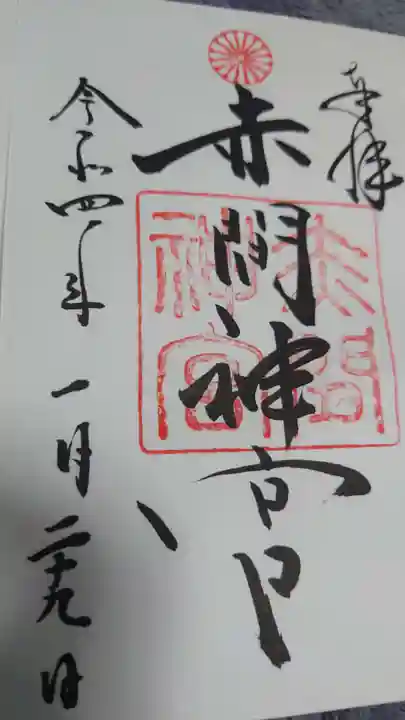 奉拝
赤間神宮
赤間神宮
令和四年一月二十九日